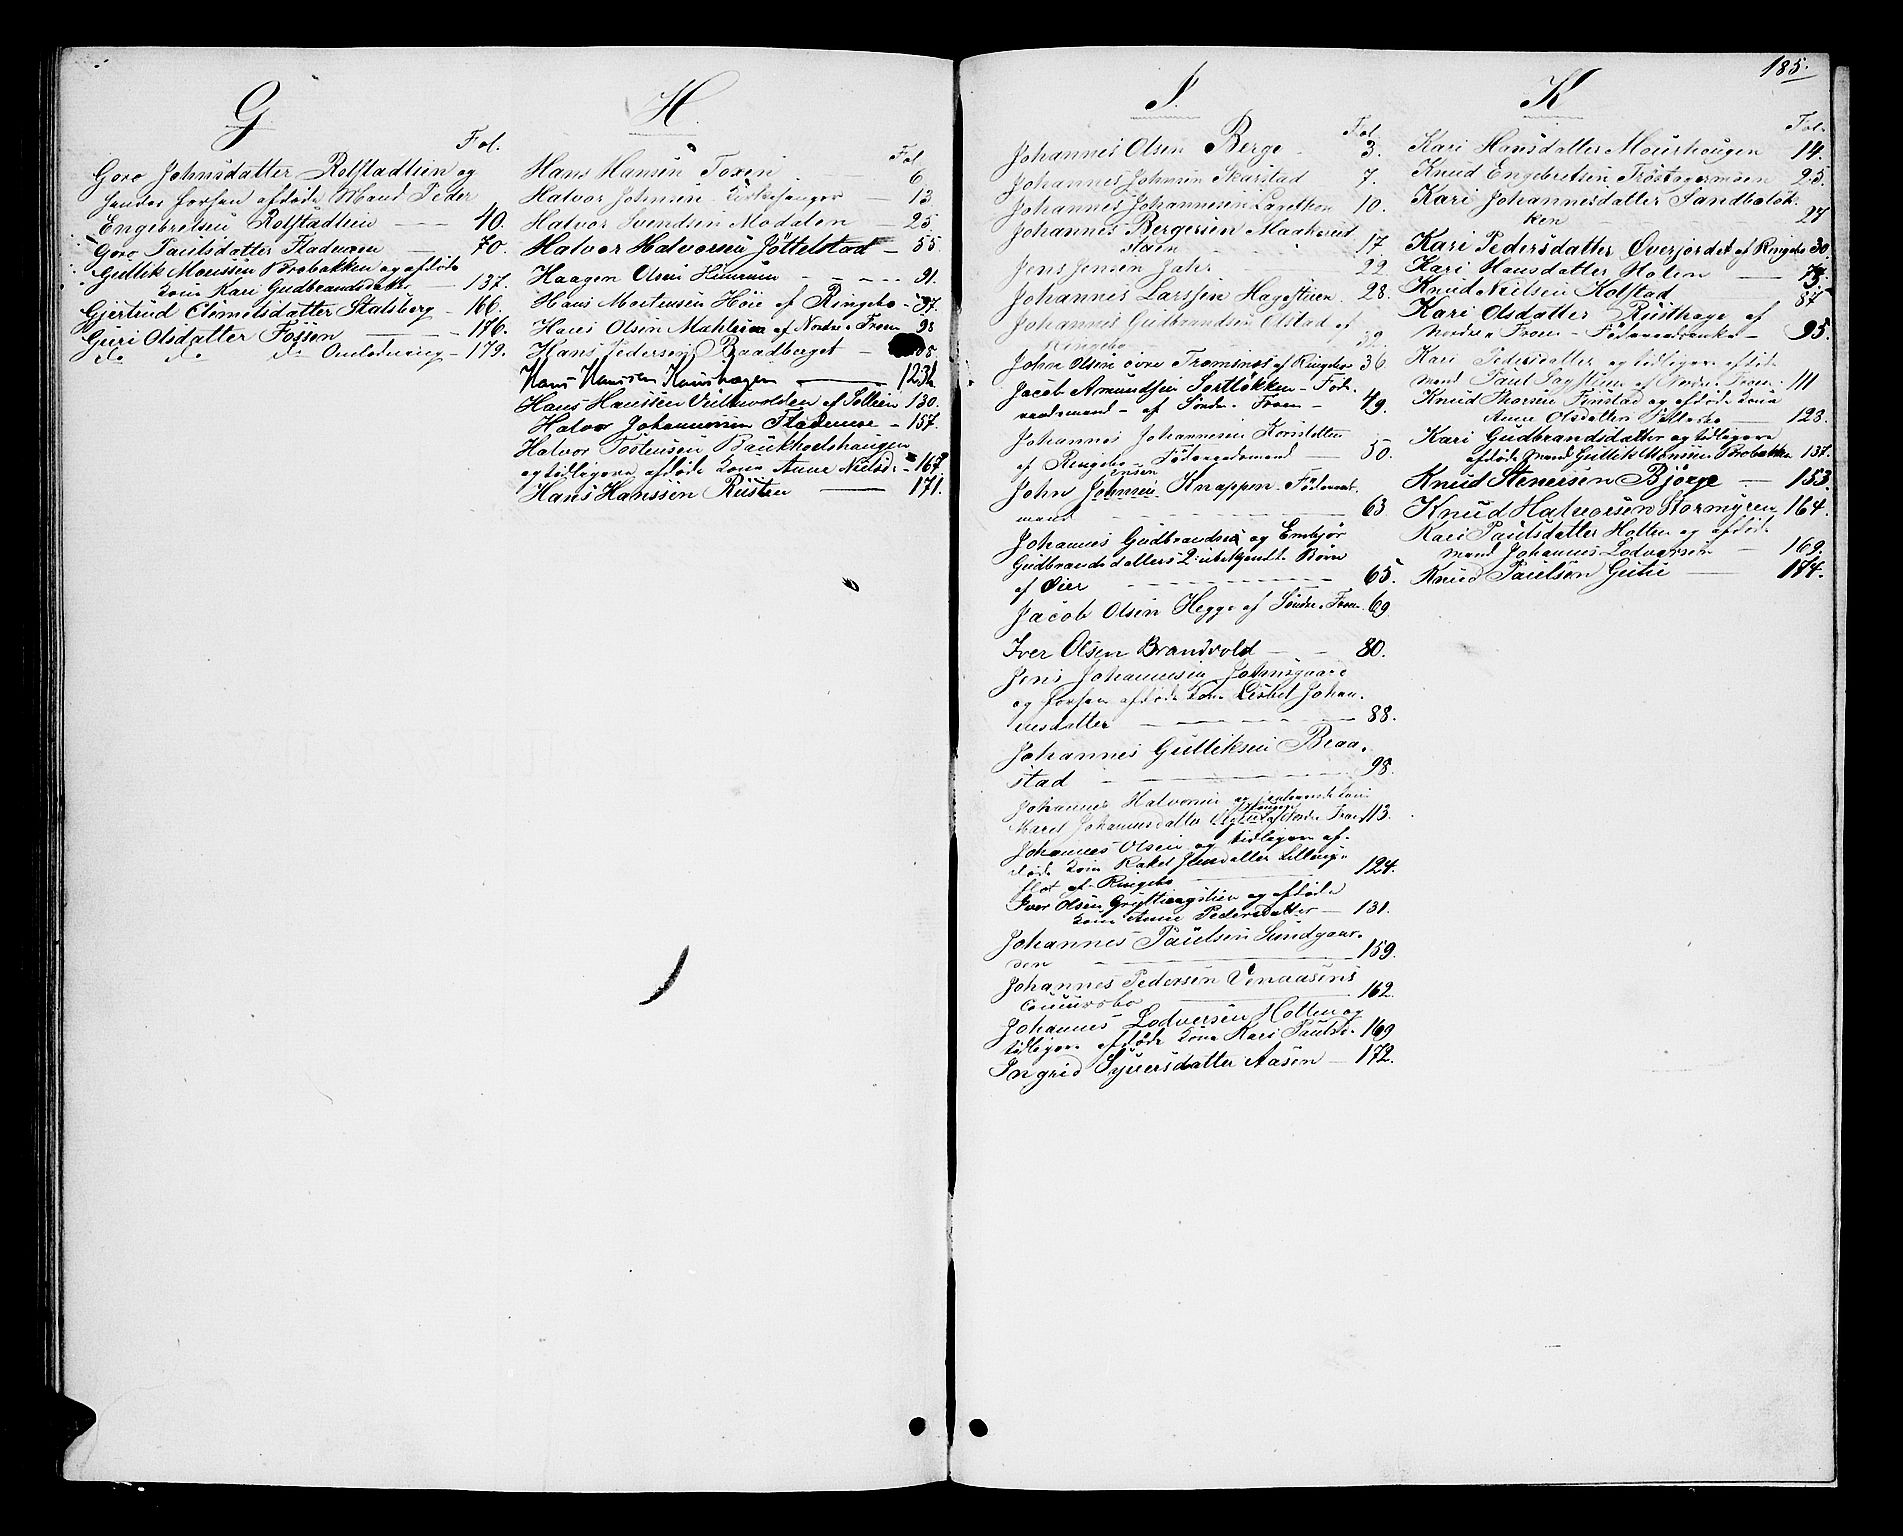 G
Fol.
Goro Johnsdatter Rolstadlien og
hendes forhen afdøde Mand Peder
Engebretsen Rolstadlien — 40.
Goro Paulsdatter Stadmoen — 70.
Gullik Monssen Brobakken og afdøde
Kone Kari Gudbrandsdatter — 137.
Gjertrud Clemetsdatter Stalsberg — 166.
Guri Olsdatter Fossen — 176.
do do do Omlodning — 179.
H.
Fol.
Hans Hansen Toxen 6
Halvor Johnsen Kirkesanger — 13
Halvor Svendsen Moddelen — 25.
Halvor Halvorsen Jöttelstad — 55
Haagen Olsen — 91.
Hans Mortensen Höie af Ringebo — 97.
Hans Olsen Mahlum af Nordre Fron 98
Hans Pedersen Baadberget —
Hans Hanssen Kaushagen — 123½
Hans Hanssen af Sollien 130.
Halvor Johannessen Stadmoe — 157.
Halvor Tostensen Baukholshaugen
og tidligere afdøde Kone Anne Nielsd. — 167.
Hans Hanssen Rusten — 171.
185.
I.
Fol.
Johannes Olsen Berge 3.
Johannes Johnsen Skarstad 7.
Johannes Johannesen 10.
Johannes Bergersen
17.
Jens Jensen Jahr 22.
Johannes Larssen Hagestuen 28.
Johannes Gudbrandsen Olstad af
Ringebo 32.
John Olsen övre Tromsnes af Ringebo 36
Jacob Amundsen Sortlökken — Föde
raadsmand — af Söndre Fron — 49.
Johannes Johannesen
af Ringebo Föderaadsmand — 50.
John Johnsen Knappen Föderaads
mand 63.
Johannes Gudbrandsen og Embjör
Gudbrandsdatters 2 ubekjendte Börn
af Öier 65.
Jacob Olsen Hegge af Söndre Fron 69
Iver Olsen Brandvold — 80.
Jens Johannesen Johnsgaard
og forhen afdøde Kone Lisbet Johan-
nesdatter 88.
Johannes Gulliksen Braa-
stad 98.
Johannes Halvorsen og Kone
Marit Johannesdatter af Nordre Fron 113.
Johannes Olsen og tidligere af-
døde Kone Rakel Jensdatter Lillengs-
af Ringebo 124.
Iver Olsen Gryttingslien og afdøde
Kone Anne Pedersdatter — 131.
Johannes Paulsen Sundgaar-
den 159.
Johannes Pedersen Venaasens
162.
Johannes Lodversen Holten og
tidligere afdøde Kone Kari Paulsd. 169
Ingrid Syversdatter Aasen — 172.
K
Fol.
Kari Hansdatter Moushougen 14.
Knud Engebretsen Tröstagermoen 25.
Kari Johannesdatter Sandbolök-
ken 27
Kari Pedersdatter Överjordet af Ringebo 30.
Kari Hansdatter Holen
Knud Nielsen Kolstad 87
Kari Olsdatter Rusthage af
Nordre Fron — Föderaadsenke — 95.
Kari Pedersdatter og tidligere afdøde
mand Paul af Nordre Fron 111
Knud Thorsen Finstad og afdøde Kone
Anne Olsdatter 123.
Kari Gudbrandsdatter og tidligere
afdøde mand Gullik Monsen Brobakken 137.
Knud Stenersen Björge — 153.
Knud Halvorsen Stormyren 164.
Kari Paulsdatter Holten og afdøde
mand Johannes Lodversen — 169.
Knud Paulsen Gutie — 174.